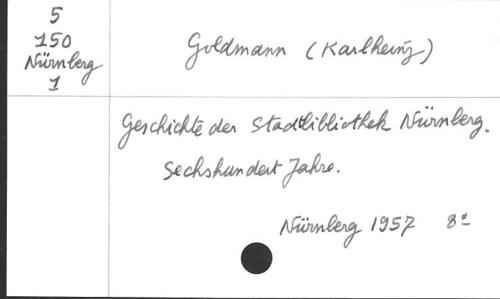 5
150
Nürnberg
1
Goldmann (Karlheinz)
Geschichte der Stadtbibliothek Nürnberg.
Sechshundert Jahre.
Nürnberg 1957 8º